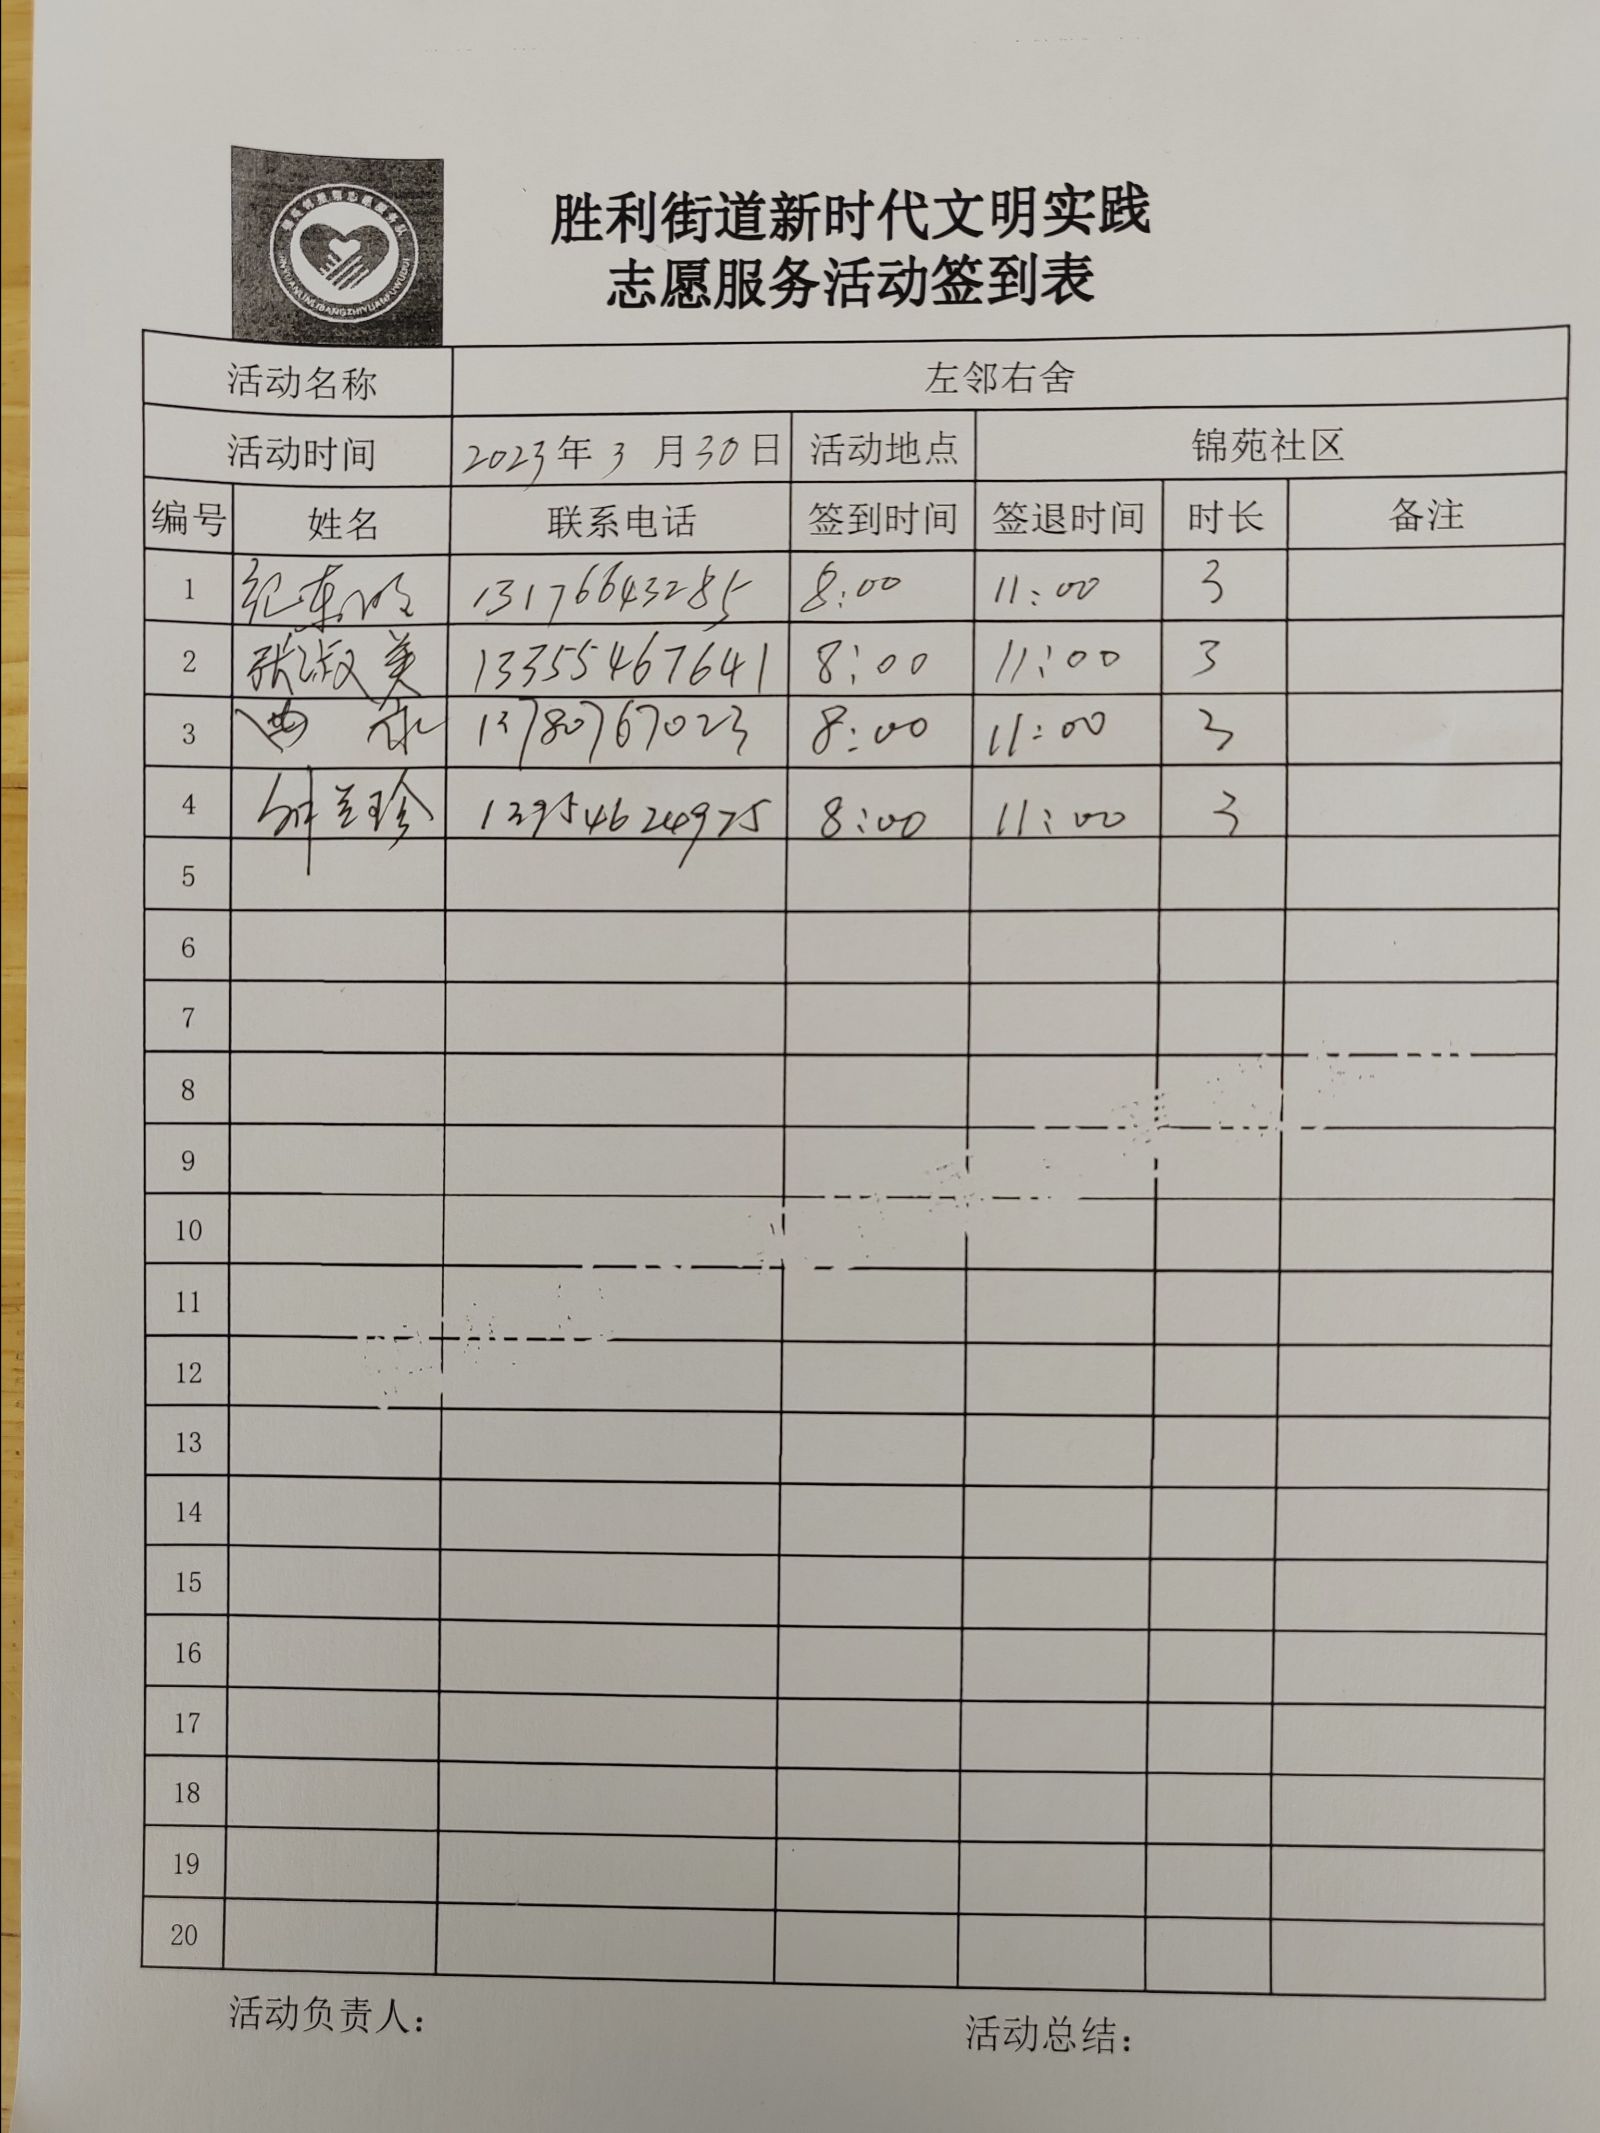 胜利街道新时代文明实践
志愿服务活动签到表
活动名称 左邻右舍
活动时间 2023年3月30日 活动地点 锦苑社区
编号 姓名 联系电话 签到时间 签退时间 时长 备注
1 13176643285 8:00 11:00 3
2 张淑美 13355467641 8:00 11:00 3
3 13780767023 8:00 11:00 3
4 钟兰珍 13954624975 8:00 11:00 3
5
6
7
8
9
10
11
12
13
14
15
16
17
18
19
20
活动负责人： 活动总结：